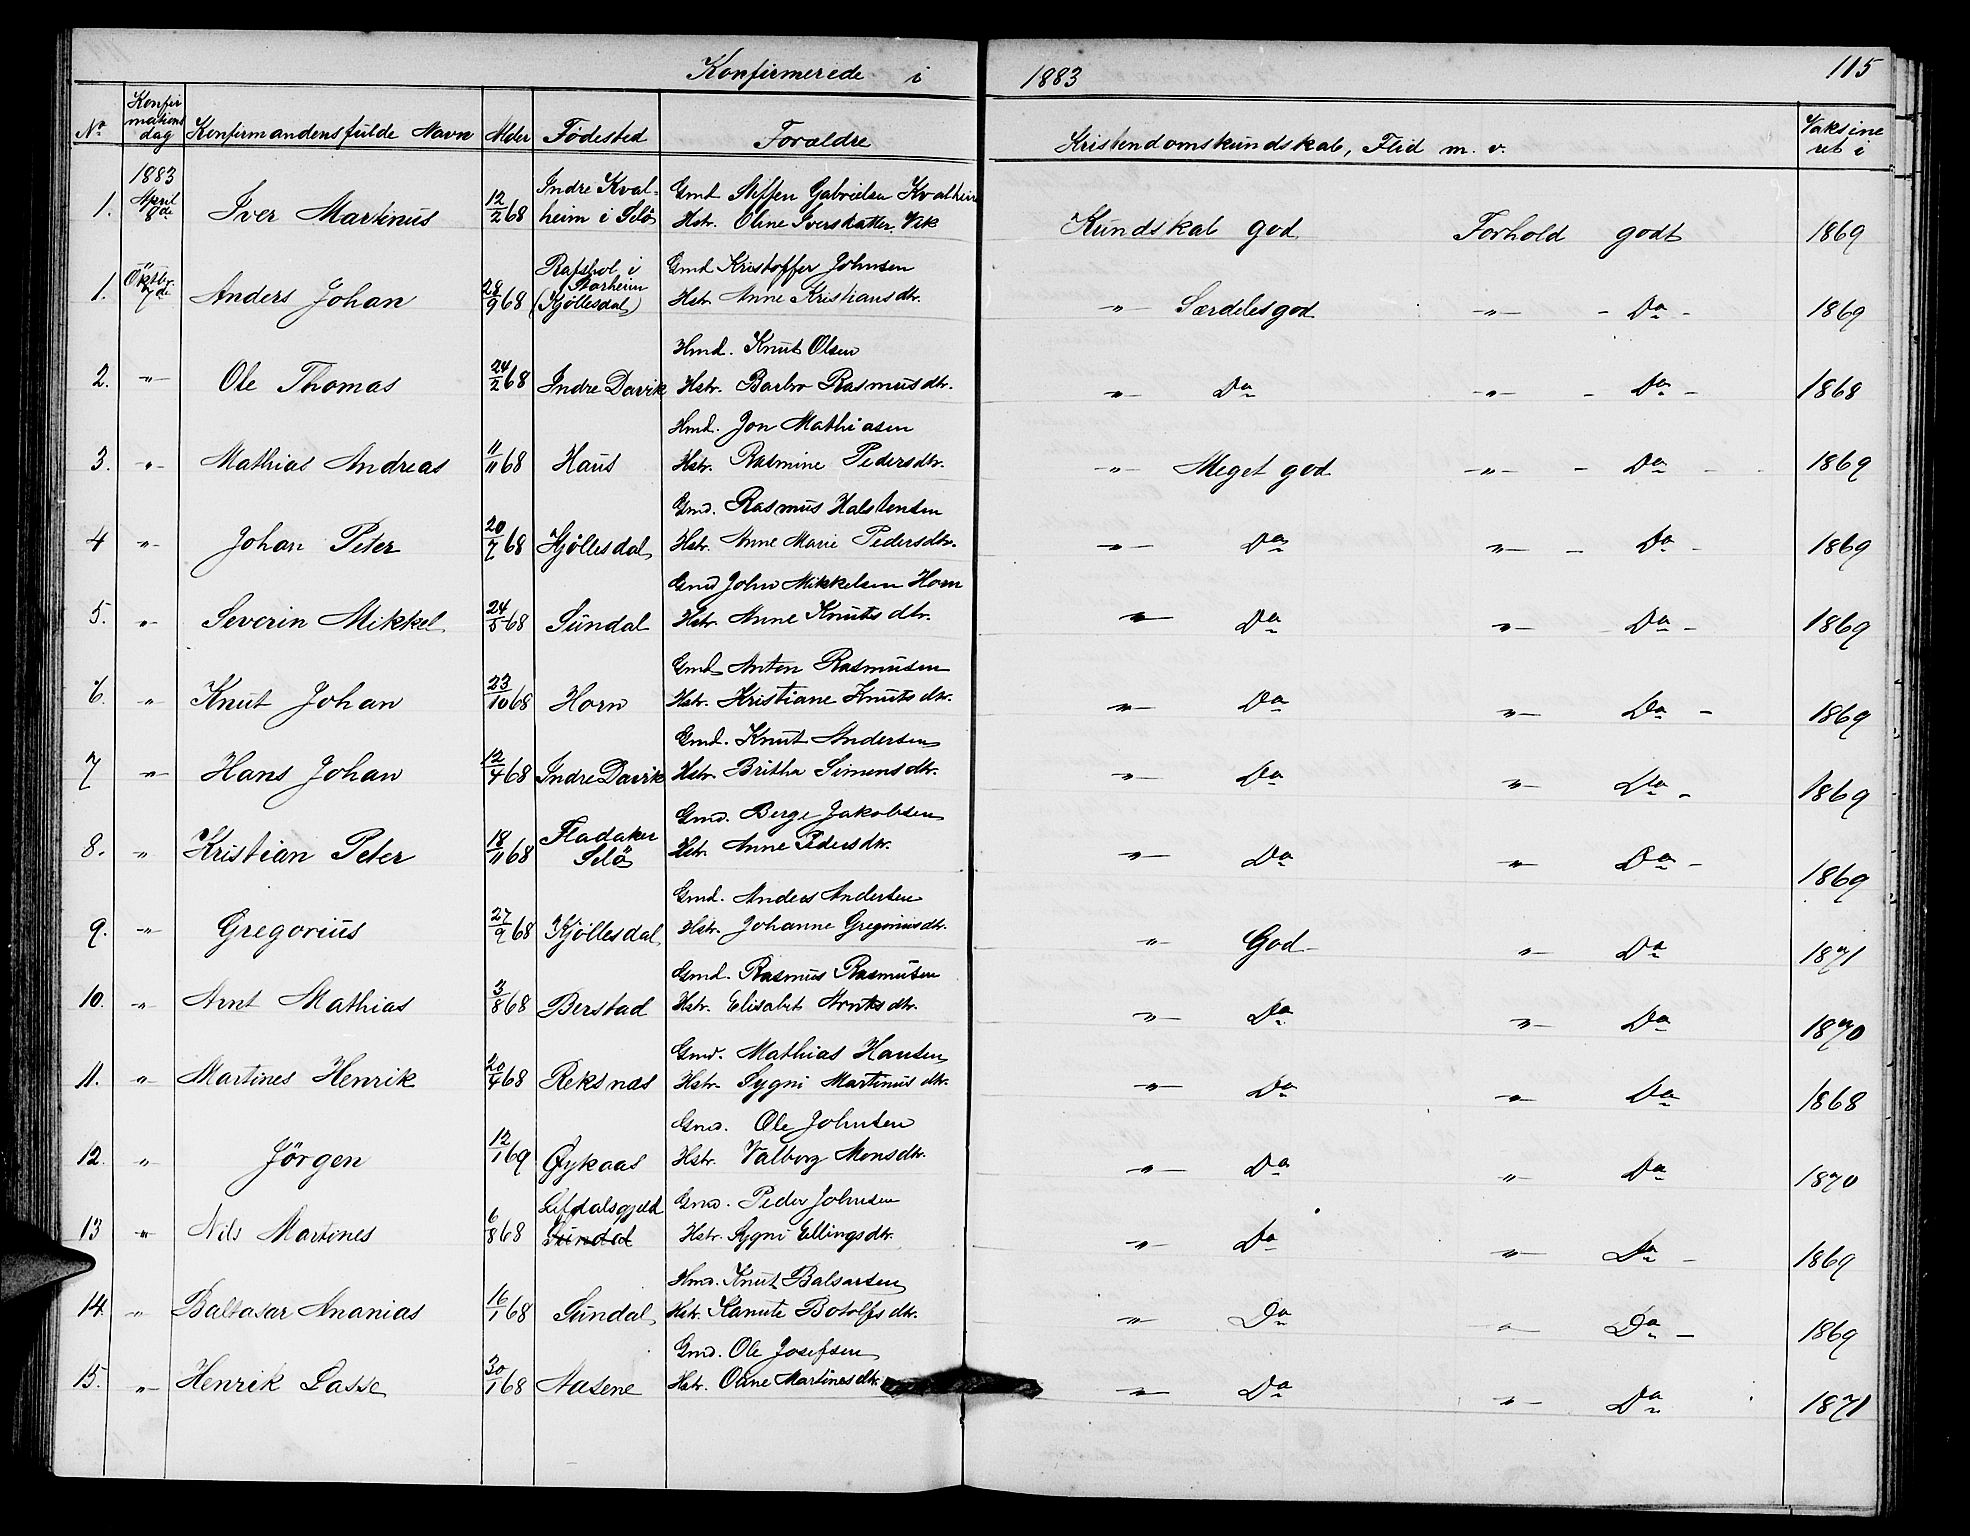 Konfirmerede i 1883 115
No Konfirmations dag Konfirmandens fulde Navn Alder Fødested Forældre Kristendomskundskab, Flid m. v. Vaksineret i
1883
1. April 8de Iver Martinus 12/2 68 Indre Kvalheim i Selö Gmd Steffen Gabrielsen Kvalheim
Hstr. Oline Iversdatter Vik Kundskab god Forhold godt 1869
1. Oktbr. 7de Anders Johan 28/9 68 Rafshol i Starheim (Kjöllesdal) Gmd Kristoffer Johnsen
Hstr. Anne Kristiansdtr. " Særdeles god " Do 1869
2. " Ole Thomas 24/2 68 Indre Davik Hmd. Knut Olsen
Hstr. Barbro Rasmusdtr. " Do " Do 1868
3. " Mathias Andreas 11/11 68 Haus Hmd. Jon Mathiasen
Hstr. Rasmine Pedersdtr. " Meget god " Do 1869
4 " Johan Peter 20/7 68 Kjöllesdal Gmd. Rasmus Halstensen
Hstr. Anne Marie Pedersdtr. " Do " Do 1869
5. " Severin Mikkel 24/5 68 Sundal Gmd John Mikkelsen Horn
Hstr. Anne Knutsdtr. " Do " Do 1869
6. " Knut Johan 23/10 68 Horn Gmd Anton Rasmusen
Hstr. Kristiane Knutsdtr. " Do " Do 1869
7 " Hans Johan 12/4 68 Indre Davik Gmd. Knut Andersen
Hstr. Britha Simensdtr. " Do " Do 1869
8. " Kristian Peter 18/11 68 Fladaker Selö Gmd. Berge Jakobsen
Hstr. Anne Pedersdtr. " Do " Do 1869
9. " Gregorius 27/9 68 Kjöllesdal Gmd. Anders Andersen
Hstr. Johanne Gregoriusdtr. " God " Do 1871
10. " Arnt Mathias 3/8 68 Berstad Gmd. Rasmus Rasmusen
Hstr. Elisabet Arntsdtr. " Do " Do 1870
11. " Martines Henrik 20/4 68 Reksnæs Gmd. Mathias Hansen
Hstr. Sygni Martinusdtr. " Do " Do 1868
12. " Jörgen 12/1 69 Øykaas Gmd. Ole Johnsen
Hstr. Valborg Monsdtr. " Do " Do 1870
13 " Nils Martines 6/8 68 Lefdalsgjeld Sundal Gmd. Peder Johnsen
Hstr. Sygni Ellingsdtr. " Do " Do 1869
14. " Baltasar Ananias 16/1 68 Sundal Hmd. Knut Balsarsen
Hstr. Kanute Botolfsdtr. " Do " Do 1869
15. " Henrik Lasse 30/1 68 Nasene Gmd. Ole Josefsen
Hstr. Oline Martinesdtr. " Do " Do 1871